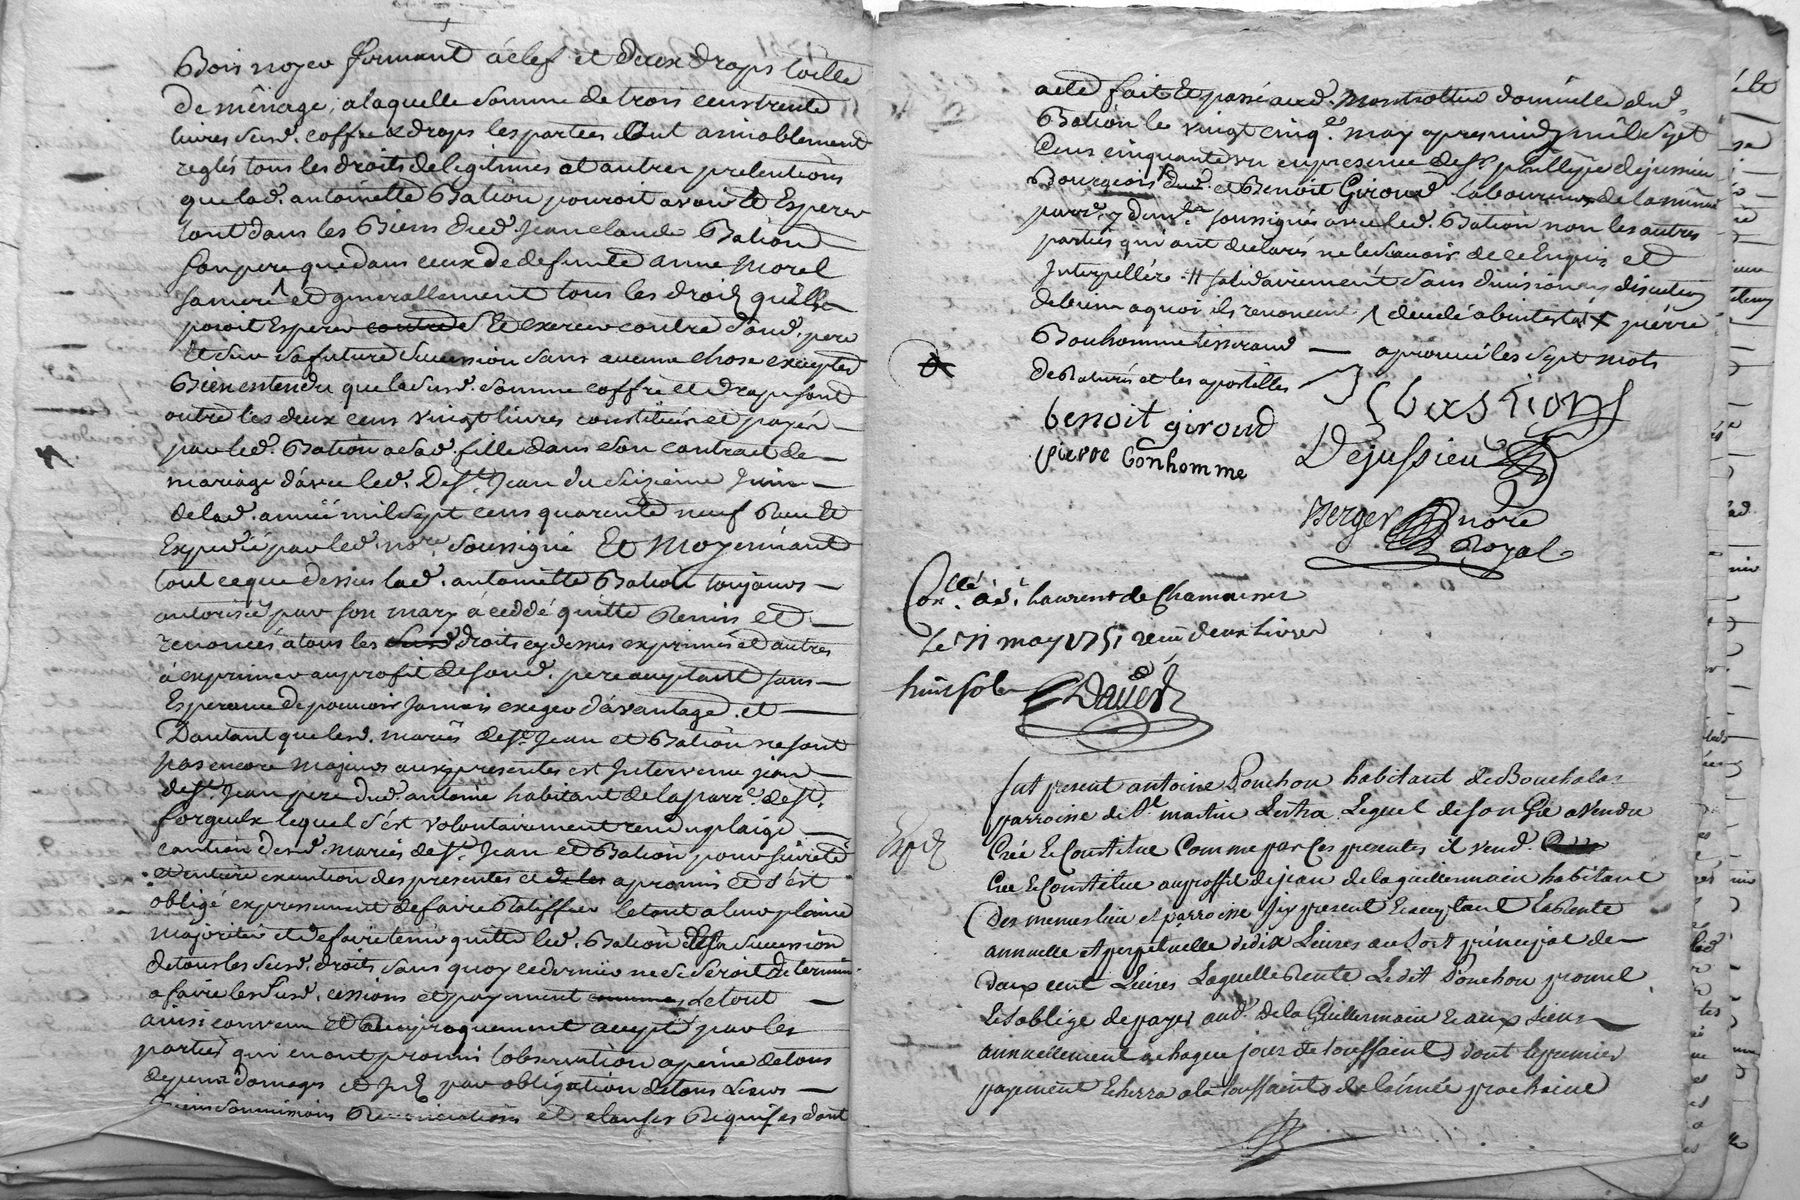 Bois noyer fermant à clef et deux draps toille
de ménage, a laquelle somme de trois cens trente
livres susd. coffre & draps les parties ont amiablement
reglés tous les droits de legitimes et autres pretentions
que lad. antoinette Bation pouroit avoir et Esperer
tant dans les Biens dud. Jean claude Bation
son pere que dans ceux de defunte anne Morel
sa mere ^ et generallement tous les droits qu'elle
pouroit Esperer contre Et exercer contre sond. pere
Et sur sa future succession sans aucune chose excepter
Bien entendu que la susd. somme coffre et draps sont
outre les deux cens vingt livres constituées et payés
par led. Bation a sad. fille dans son contract de
mariage d'avec led. De St. Jean du seizieme Juin
de lad. année mil sept cens quarente neuf Receu et
Expedié par led. nore. soussigné Et Moyennant
tout ce que dessus lad. antoinette Bation toujours
autorisée par son mary à ceddé quitte Remis et
renoncés a tous les susd droits cy dessus exprimés et autres
à exprimer au profit de sond. pere acceptant sans
Esperance de pouvoir Jamais exiger d'avantage. et
D'autant que lesd. mariés de St. Jean et Bation ne sont
pas encore majeurs aux presentes est Intervenu jean
de St. Jean pere dud. antoine habitant de la parr.e de St.
forgeulx lequel s'est volontairement rendu plaige
caution desd. mariés de St. Jean et Bation pour sureté
et entiere execution des presentes et de les a promis et s'est
obligé expressement de faire Ratiffier le tout a leur plaine
majorité et de faire tenir quitte led. Bation de la succession
de tous les susd. droits sans quoy ce dernier ne se seroit determiné
a faire les susd. cessions et payement le tout
ainsi convenu et Reciproquement accepté par les
parties qui en ont promis l'observation a peine de tous
depens domages et par obligation de tous leurs
biens soumissions Renonciations et clauses Requises dont
acte fait et passé aud. Montrottier domicille dud.
Bation le vingt cinq.e may apres midy mil sept
Cens cinquante un en presence de sr. phillippe dejussieu
Bourgeois dud. et Benoit Giroud laboureur de la même
parr.e y dem.t soussignés avec led. Bation non les autres
parties qui ont declarés ne le scavoir de ce Enquis et
Interpellés # solidairement sans division ny discution
de biens a quoi ils renoncent ^ decedé abintestat x pierre
Bonhomme tisserand — aprouvé les sept mots
de Raturés et les apostilles
J C bastion
benoit giroud
Dejussieu
pierre bonhomme
Berger nore
Royal
Con.llé à St. Laurent de Chamousset
Le 31 may 1751 receu deux livres
huit sols
Daver
fut present antoine Ponchon habitant de Bouchalas
parroisse de St. martin Lestra Lequel de son Gré a vendu
Expd.
Créé & Constitue Comme par Ces presentes il vend.
Cree & Constitue au proffit de jean de la guillermain habitant
Des memes lieu et parroisse Icy present & acceptant La Rente
annuelle et perpetuelle de dix Livres au Sort principal de
Deux cent Livres Laquelle Rente Ledit Ponchon promet
Et s'oblige de payer aud. De la Guillermain & aux Siens
annuellement a chaque jour de toussaint dont le premier
payement Echerra a la toussaint de l'année prochaine